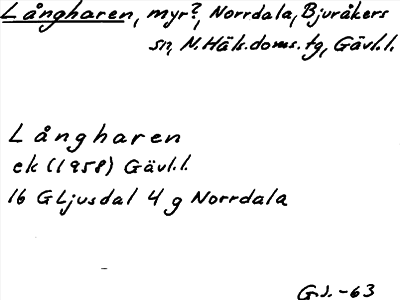 Långharen, myr?, Norrdala, Bjuråkers
sn, N.Häls.doms.tg, Gävl.l.
Långharen
ek (1958) Gävl.l.
16 G Ljusdal 4 g Norrdala
G.J. -63